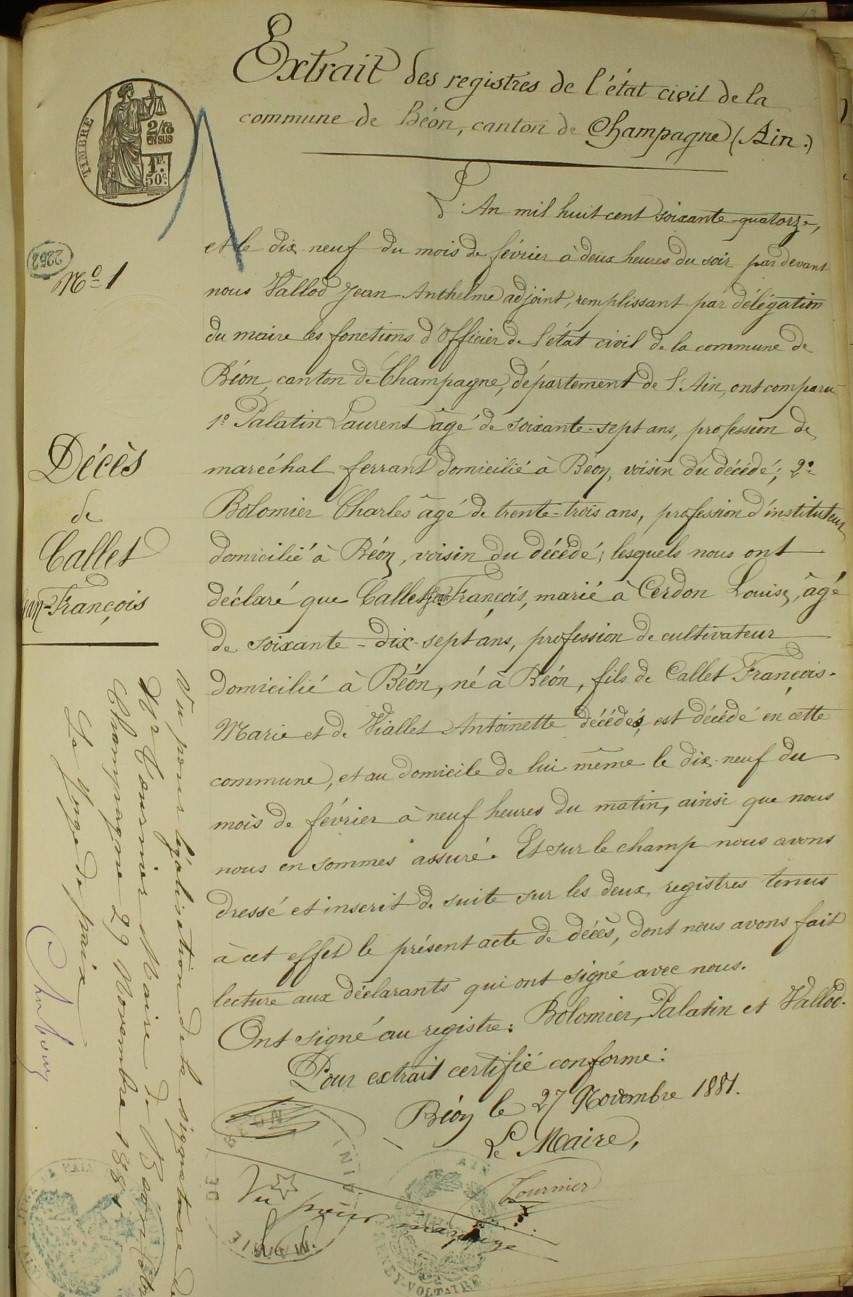 Extrait des registres de l'état civil de la
commune de Béon, canton de Champagne (Ain.)
TIMBRE
2/10
EN SUS
1F.
50c.
L'An mil huit cent soixante quatorze,
et le dix-neuf du mois de février à deux heures du soir par devant
2262
N° 1
nous Vallod Jean Anthelme adjoint, remplissant par délégation
du maire les fonctions d'Officier de l'état civil de la commune de
Béon, canton de Champagne, département de l'Ain, ont comparu
1° Palatin Laurent âgé de soixante-sept ans, profession de
maréchal ferrant domicilié à Béon, voisin du décédé; 2°
Bolomier Charles âgé de trente-trois ans, profession d'instituteur
domicilié à Béon, voisin du décédé; lesquels nous ont
déclaré que Callet Jean François, marié à Cerdon Louise, âgé
de soixante-dix-sept ans, profession de cultivateur
domicilié à Béon, né à Béon, fils de Callet François-
Marie et de Viallet Antoinette décédés, est décédé en cette
commune, et au domicile de lui même le dix-neuf du
mois de février à neuf heures du matin, ainsi que nous
nous en sommes assuré. Et sur le champ nous avons
dressé et inscrit de suite sur les deux registres tenus
à cet effet le présent acte de décès, dont nous avons fait
lecture aux déclarants qui ont signé avec nous.
Ont signé au registre: Bolomier, Palatin et Vallod.
Pour extrait certifié conforme:
Béon le 27 Novembre 1881.
Le Maire,
Tournier
Décès
de
Callet
Jean-François
Vu pour légalisation de la signature de
Mr Tournier Maire de Béon
Champagne 29 Novembre 188
Le Juge de paix
MAIRIE DE BEON AIN
Vu pour mariage
AIN
FERNEY-VOLTAIRE